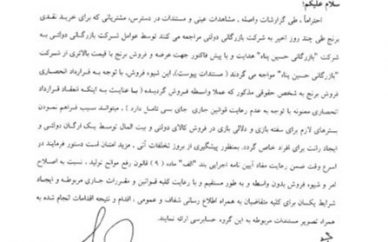 سلام علیکم؛
احتراماً، طی گزارشات واصله، مشاهدات عینی و مستندات در دسترس، مشتریانی که برای خرید نقدی
برنج طی چند روز اخیر به شرکت بازرگانی دولتی مراجعه می کنند توسط عوامل شرکت بازرگانی دولتی به
شرکت "بازرگانی حسین پناه" هدایت و با پیش فاکتور جهت عرضه و فروش برنج با قیمت بالاتری از شرکت
بازرگانی حسین پناه" مواجه می گردند ( مستندات پیوست)، این شیوه فروش، با توجه به قرارداد انحصاری
فروش برنج به شخص حقوقی مذکور که عملا واسطه فروش گردیده ( بنا به عنایت به اینکه انعقاد قرارداد
انحصاری مصونه با توجه به عدم رعایت قوانین جاری جای بسی تامل دارد) میتواند سبب فراهم نمودن
بسترهای لازم برای سفته بازی و دلالی بازی در فروش کالای دولتی و بیت المال توسط یک ارگان دولتی و
ایجاد رانت برای افراد خاص گردد. بمنظور پیشگیری از بروز تخلفات آتی، مزید امتنان است دستور فرمایند در
اسرع وقت ضمن رعایت مفاد آیین نامه اجرایی بند "الف" ماده (۹) قانون رفع موانع تولید، نسبت به اصلاح
امر و شیوه فروش بدون واسطه و به طور مستقیم و با رعایت کلیه قوانین و مقررات جاری مربوطه و ایجاد
شرایط یکسان برای کلیه متقاضیان به همراه اطلاع رسانی شفاف و عمومی، اقدام و نتیجه اقدامات انجام شده به
همراه تصویر مستندات مربوطه به این گروه حسابرسی ارائه نمایند.